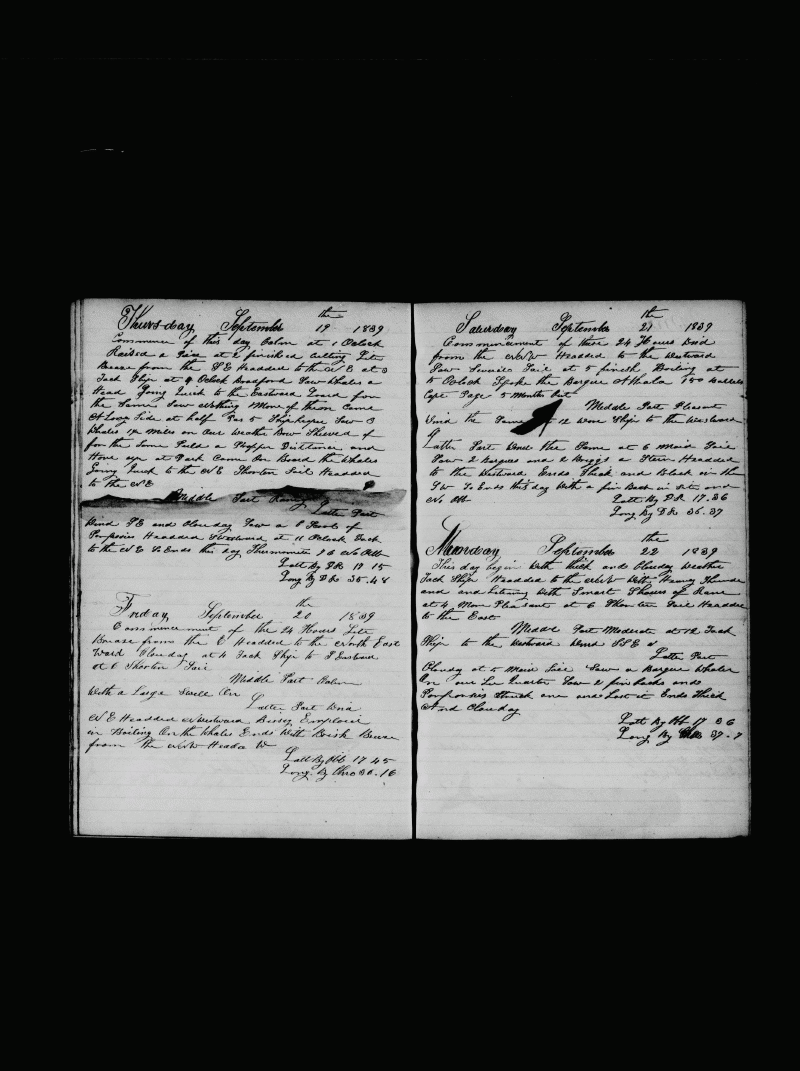 Thursday September 19th 1839
Commence of this day Calm at 1 Oclock
Raised a at 2 finished Cutting Lite
Breese from the SE Headded to the NE at 3
Tack Ship at 9 Oclock Bradford Saw Whales a
Head Going Quick to the Eastward Loard from
the Same Saw Nothing More of them Came
A Long Side at half Pas 5 Saw 3
Whales 1/2 miles on Our Weather Bow of
for the Same and
Hove up at Dark Came On Board the Whales
Going Quick to the NE Shorten Sail Headded
to the NE
Middle Part
Latter Part
Wind SE and Clouday Saw a Scool of
Porposies Headded at 11 Oclock Tack
to the NE So Ends this day No Obb
Latt By DR 18 15
Long By DR 35.48
Friday September 20th 1839
Commencement of the 24 Hours Lite
Brease from the E Headded to the North East
Ward Clouday at 4 Tack Ship to S Eastward
at 6 Shorten Sail
Middle Part Calm
With a Large Swell On
Latter Part Wind
NE Headded NWestward Bussy Employed
in Boiling On the Whales Ends With Brisk Breese
from the NNW Headed W
Latt By Obb 17 45
Long By Chro 36.16
Saturday September 21th 1839
Commencement of these 24 Hours Wind
from the NNW Headded to the Westward
Saw Several Sail at 5 finesh Boiling at
5 Oclock Spoke the Barque Athala 150 Barrels
Capt Page 5 Months Out
Meddle Part Pleasent
Wind the Same at 12 Wore Ship to the Westward
Latter Part Wind the Same at 6 Maid Sail
Saw 2 Barques and 2 Briggs a Stern Headded
to the Westward Ends Thick and Black in the
SW So Ends this day With a fin Back in Site and
No Obb
Latt By DR 17.36
Long By DR 36.37
Munday September 22th 1839
This day begin With thick and Clouday Weather
Tack Ship Headded to the NNW With Heavy Thunder
and and Litening With Smart Showers of Rane
at 4 More Pleasant at 6 Shorten Sail Headded
to the East
Meddle Part Moderate at 12 Tack
Ship to the Westward Wind SSE
Latter Part
Clouday at 5 Maid Sail Saw a Barque Whaler
On our Lee Quarter Saw 2 fin backs and
Porposies Struck one and Lost it Ends Thick
And Clouday
Latt By Obb 17 36
Long By 37.7